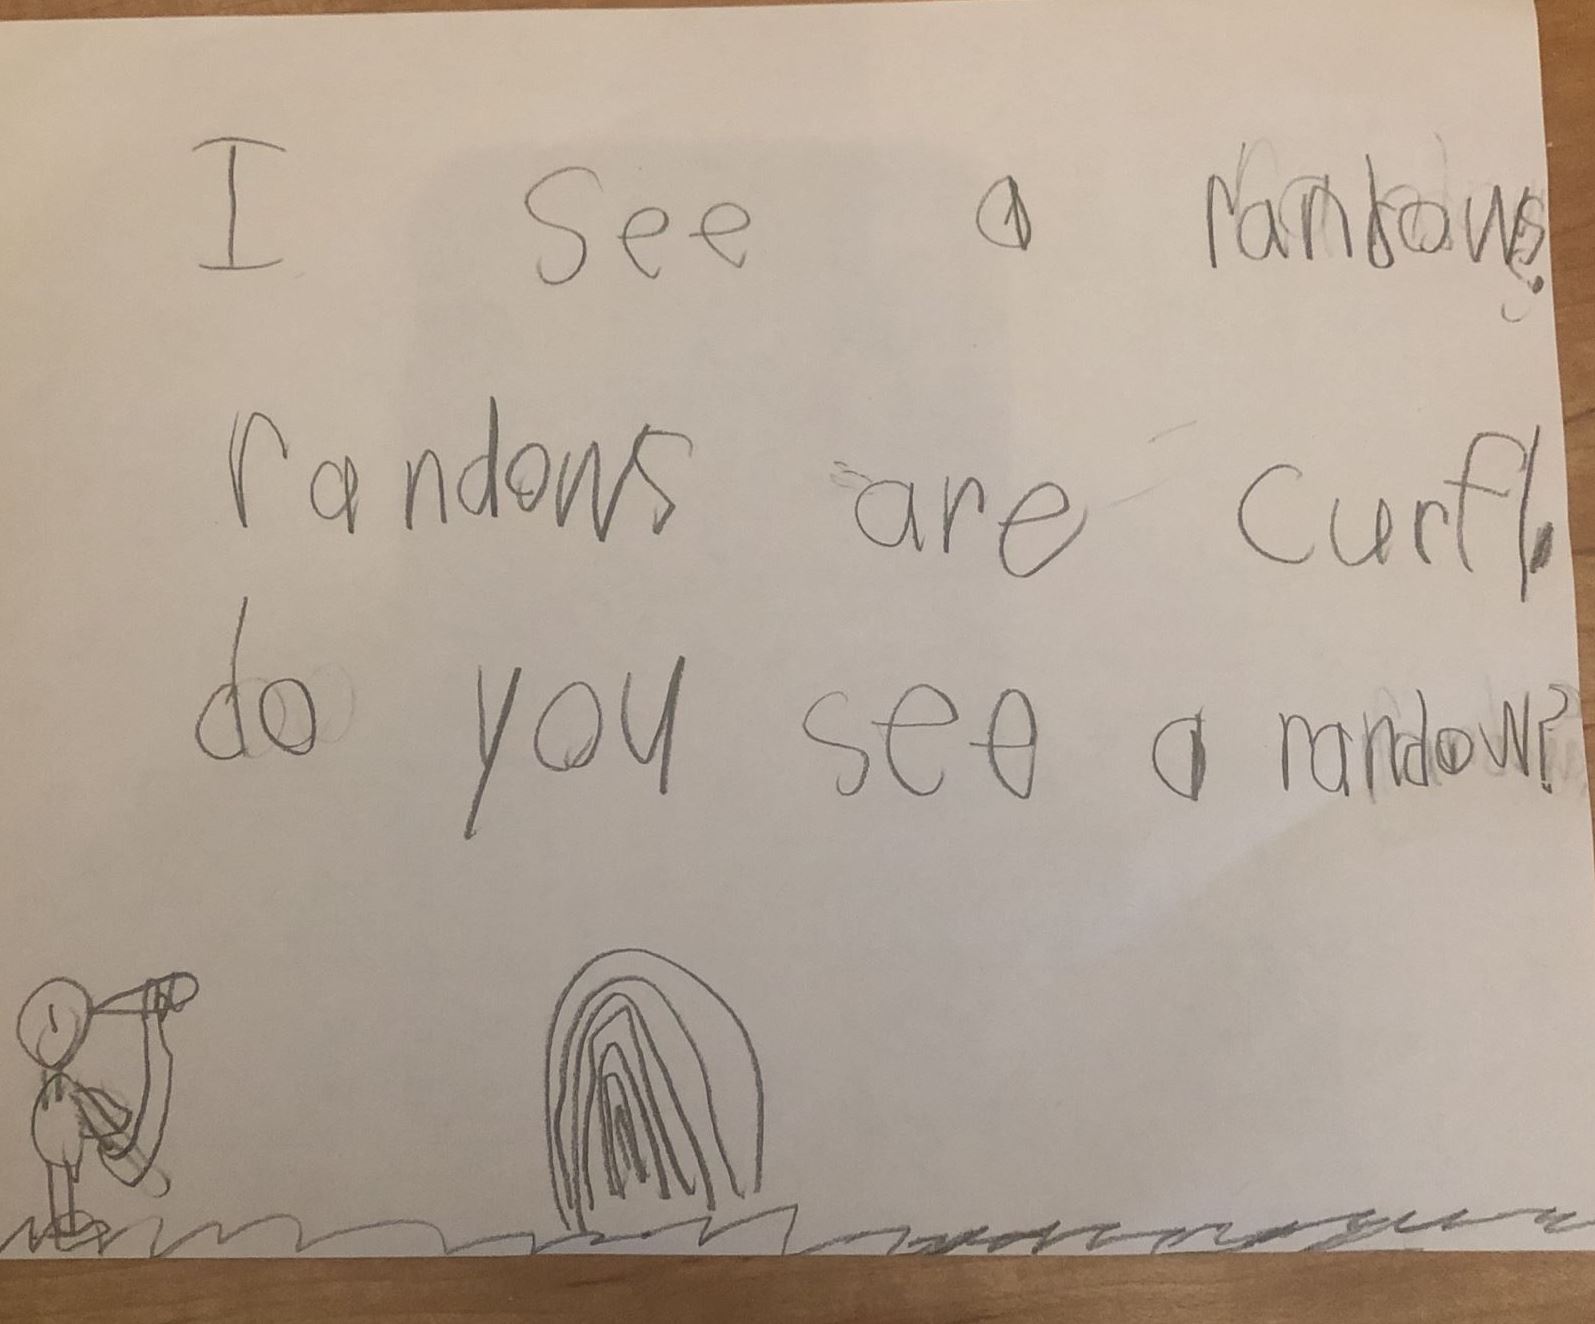 I see a ranbow.
randows are curfl.
do you see a randow?